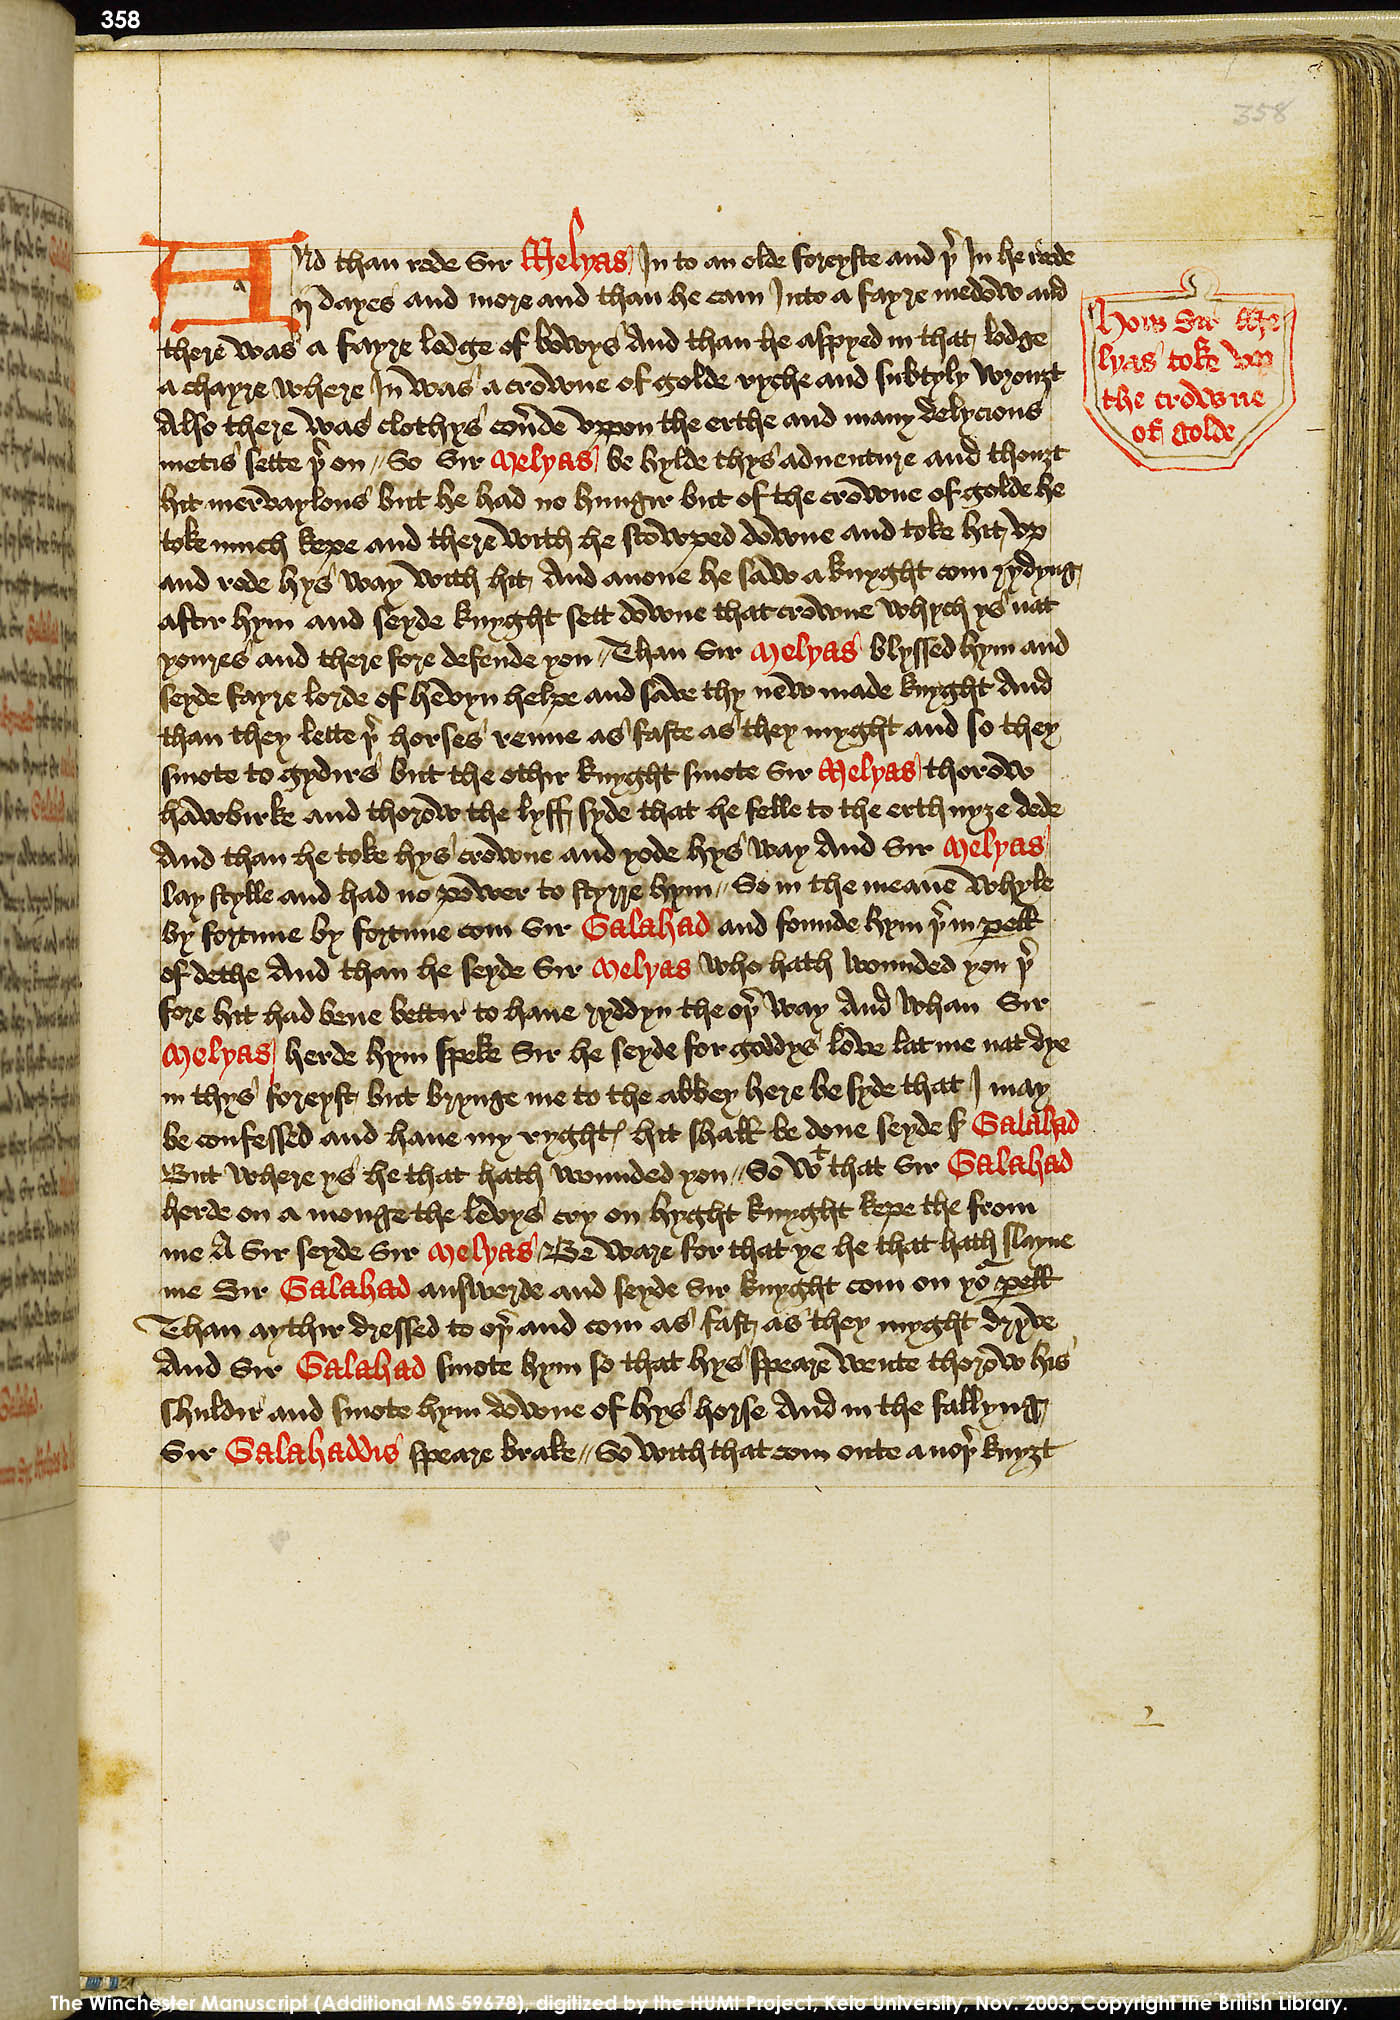 358
358
And than rode Sir Melyas In to an olde foreyste and þr In he rode
ij dayes and more and than he cam Into a fayre medow and
there was a fayre lodge of bowys And than he aspyed in that lodge
a chayre where In was a crowne of golde ryche and subtyly wrouȝt
Also there was clothys cou͛de vppon the erthe and many delycious
metis sette þr on // So Sir Melyas be hylde thys adventure and thouȝt
hit mervaylous but he had no hungir but of the crowne of golde he
toke much kepe and there with he stowped downe and toke hit vp
and rode hys way with hit And anone he saw a knyght com rydyng
aftir hym and seyde knyght sett downe that crowne whych ys nat
youres and there fore defende you // Than Sir Melyas blyssed hym and
seyde fayre lorde of hevyn helpe and save thy new made knyght And
than they lette þr horses renne as faste as they myght and so they
smote to gydirs but the othir knyght smote Sir Melyas thorow
hawbirke and thorow the lyfft syde that he felle to the erth nyȝe dede
And than he toke hys crowne and yode hys way And Sir Melyas
lay stylle and had no power to styrre hym // So in the meane whyle
by fortune by fortune com Sir Galahad and founde hym þr in ꝑell
of dethe And than he seyde Sir Melyas who hath wounded you þr
fore hit had bene bettir to haue ryddyn the oþr way And whan Sir
Melyas herde hym speke Sir he seyde for goddys love lat me nat dye
in thys foreyst but brynge me to the abbey here be syde that I may
be confessed and haue my ryght hit shall be done seyde ẜ Galahad
But where ys he that hath wounded you // So wt that Sir Galahad
herde on a monge the levys cry on hyght knyght kepe the from
me A Sir seyde Sir Melyas Be ware for that ye he that hath slayne
me Sir Galahad answerde and seyde Sir knyght com on yor ꝑell
Than aythir dressed to oþr and com as fast as they myght dryve
And Sir Galahad smote hym so that hys speare wente thorow his
shuldir and smote hym downe of hys horse And in the fallyng
Sir Galahaddis speare brake // So with that com oute a noþr knyȝt
How Sir Me
lyas toke vp
the crowne
off golde
The Winchester Manuscript (Additional MS 59678), digitized by the HUMI Project, Keio University, Nov. 2003; Copyright the British Library.